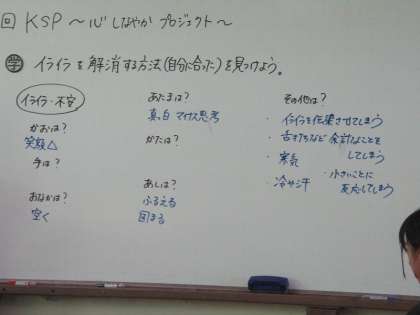 回 KSP ～心 しなやか プロジェクト～
学 イライラを解消する方法(自分に合った)を見つけよう。
イライラ・不安
かおは?
笑顔△
手は?
おなかは?
空く
あたまは?
真っ白 マイナス思考
かたは?
あしは?
ふるえる
固まる
その他は?
・イライラを伝染させてしまう
・舌打ちなど 余計なことをしてしまう
・寒気
・冷や汗
・小さいことに反応してしまう